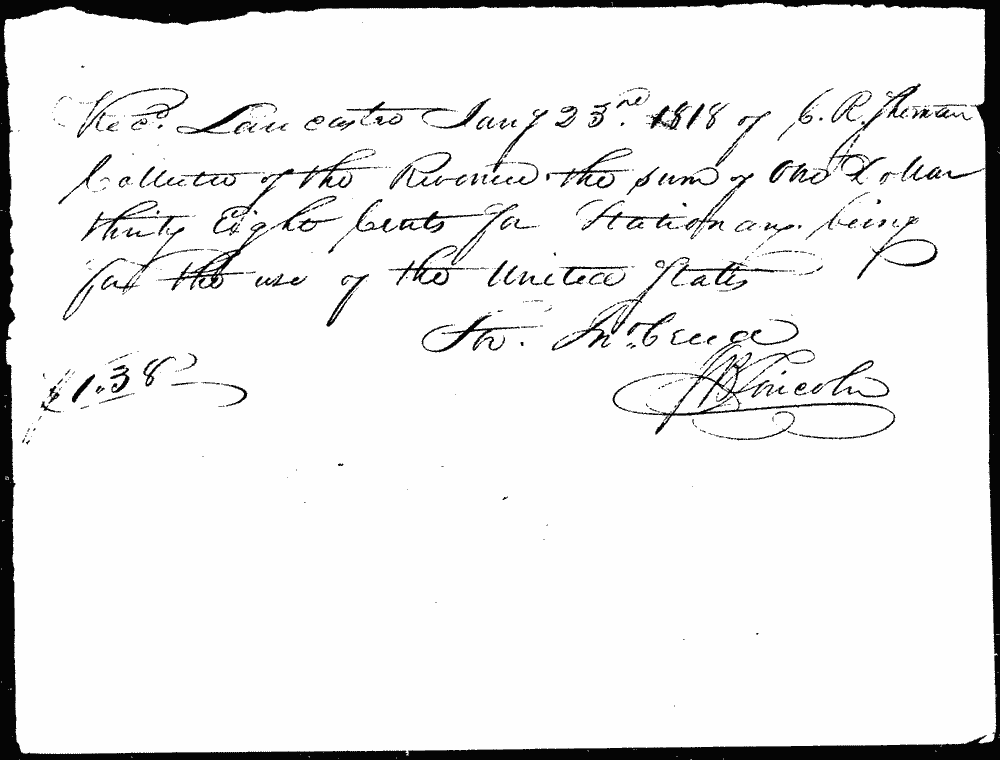 Recd. Lancaster Jany 23rd. 1818 of C. R. Sherman
Collector of the Revenue the sum of One Dollar
thirty Eight Cents for Stationary. being
for the use of the United States
for. Jno. Creed
$1.38
JB Lincoln